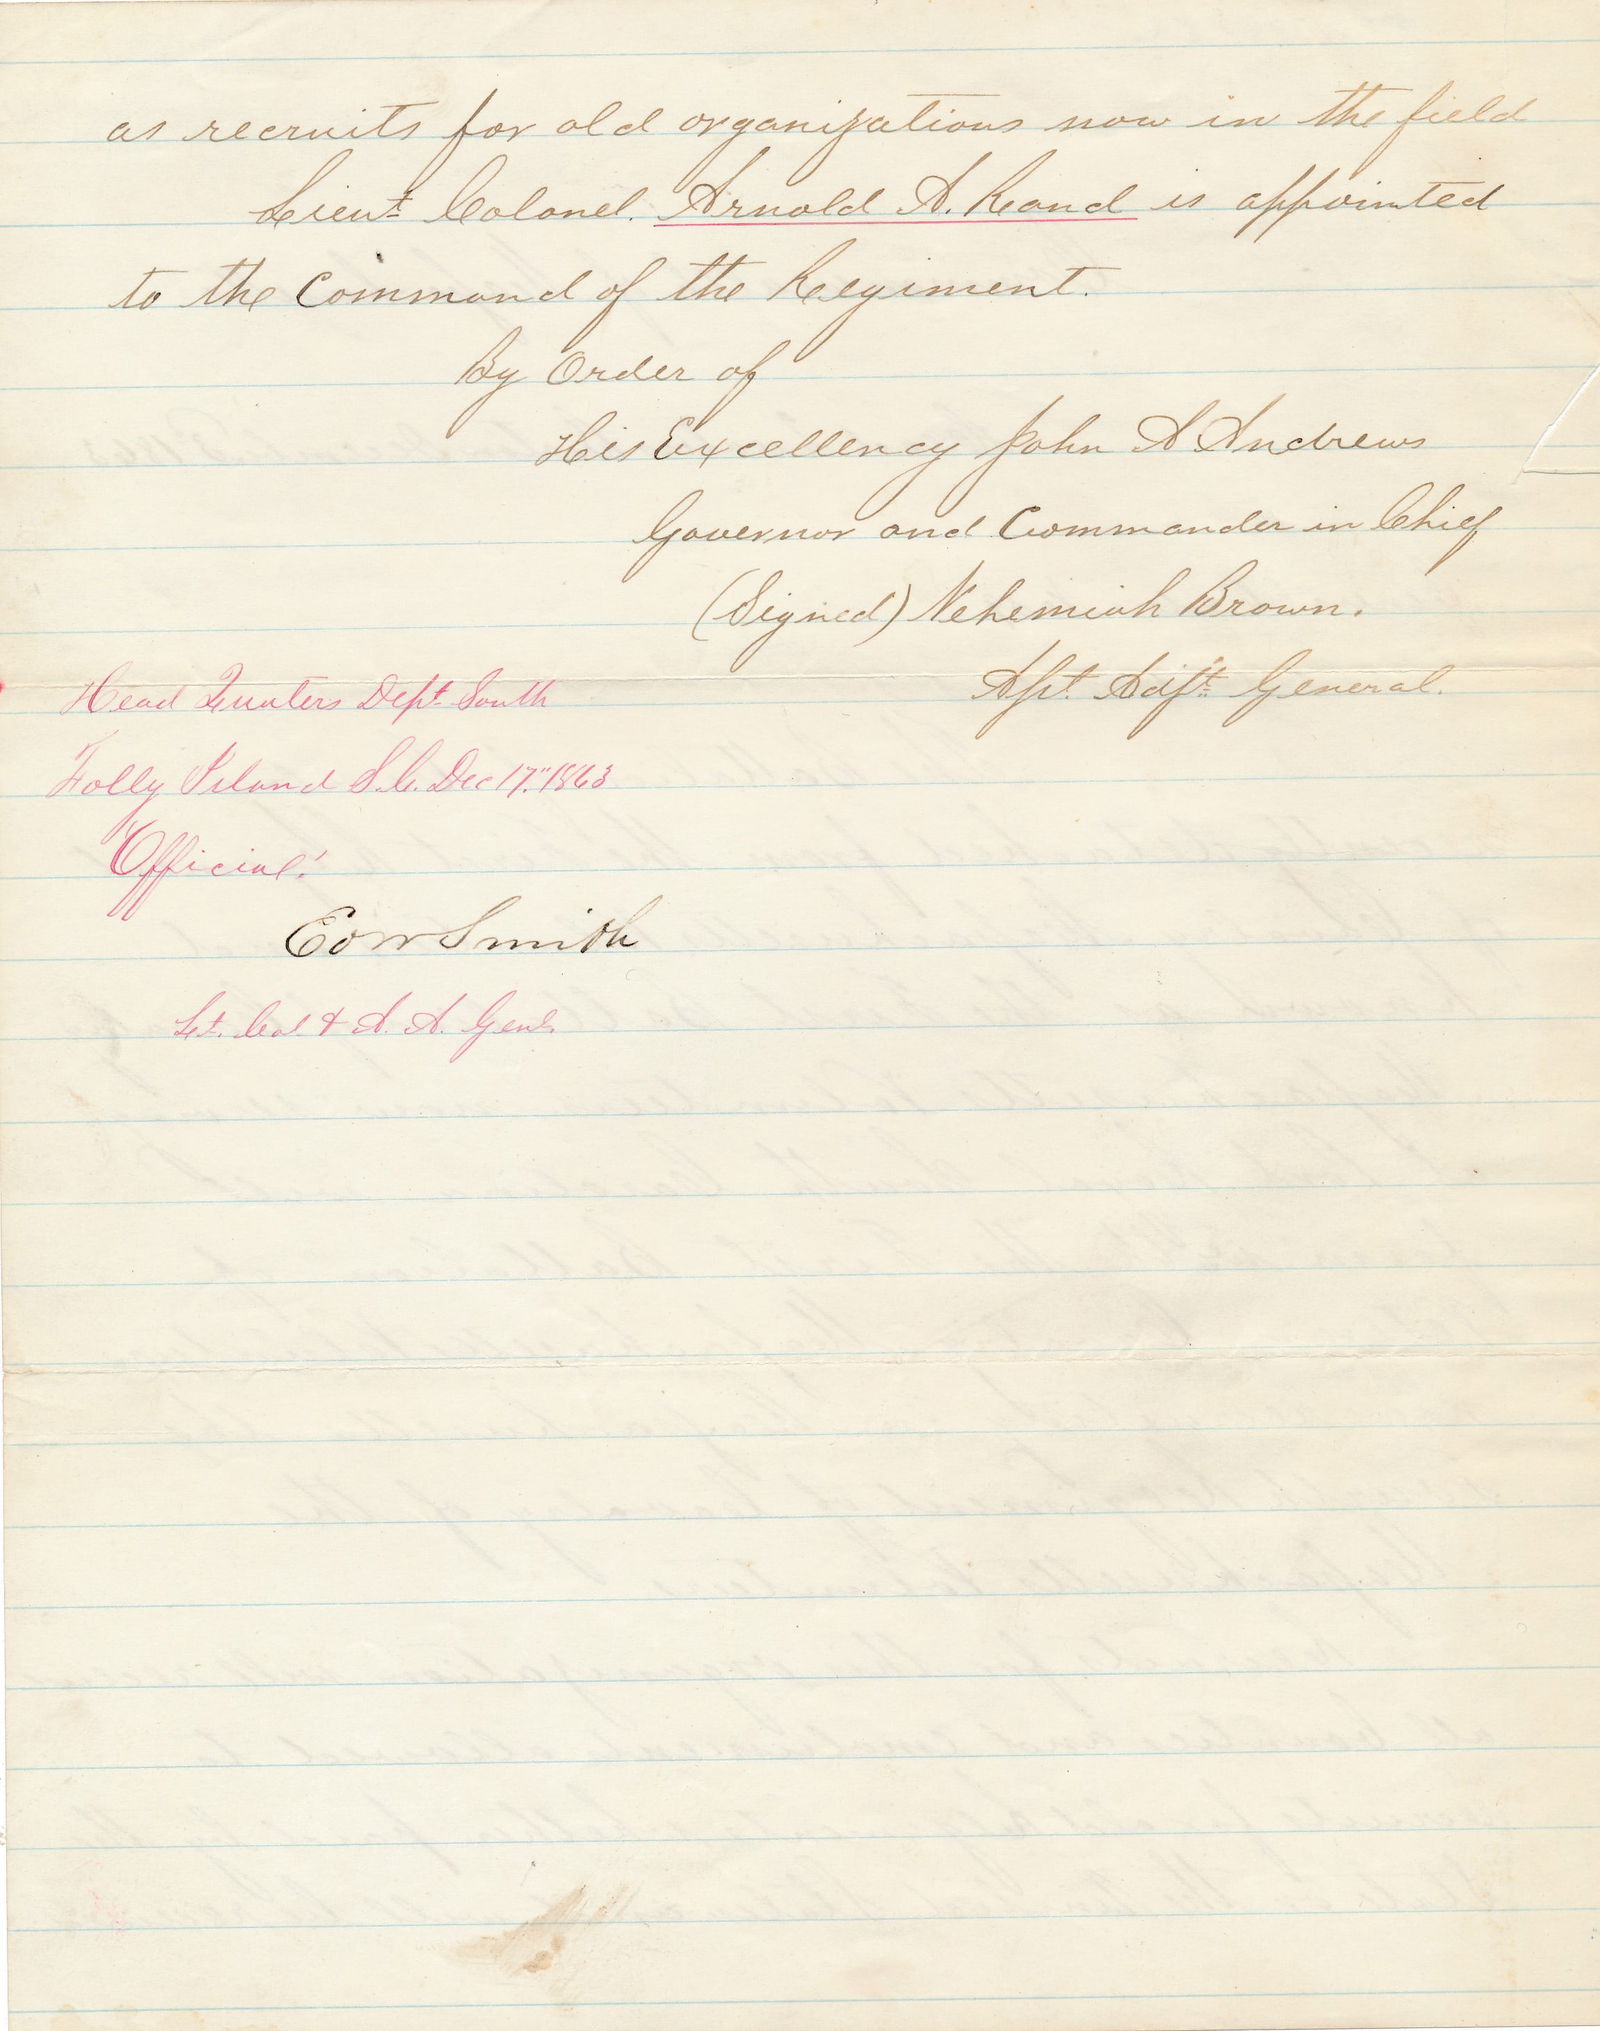 as recruits for old organizations now in the field
Lieut Colonel. Arnold A. Rand is appointed
to the Command of the Regiment.
By Order of
His Excellency John A Andrews
Governor and Commander in Chief
(Signed) Nehemiah Brown.
Asst. Adjt. General.
Head Quaters Dept South
Folly Island S.C. Dec 17." 1863
"Official."
Ed W Smith
Lt. Col & A. A. Genl.